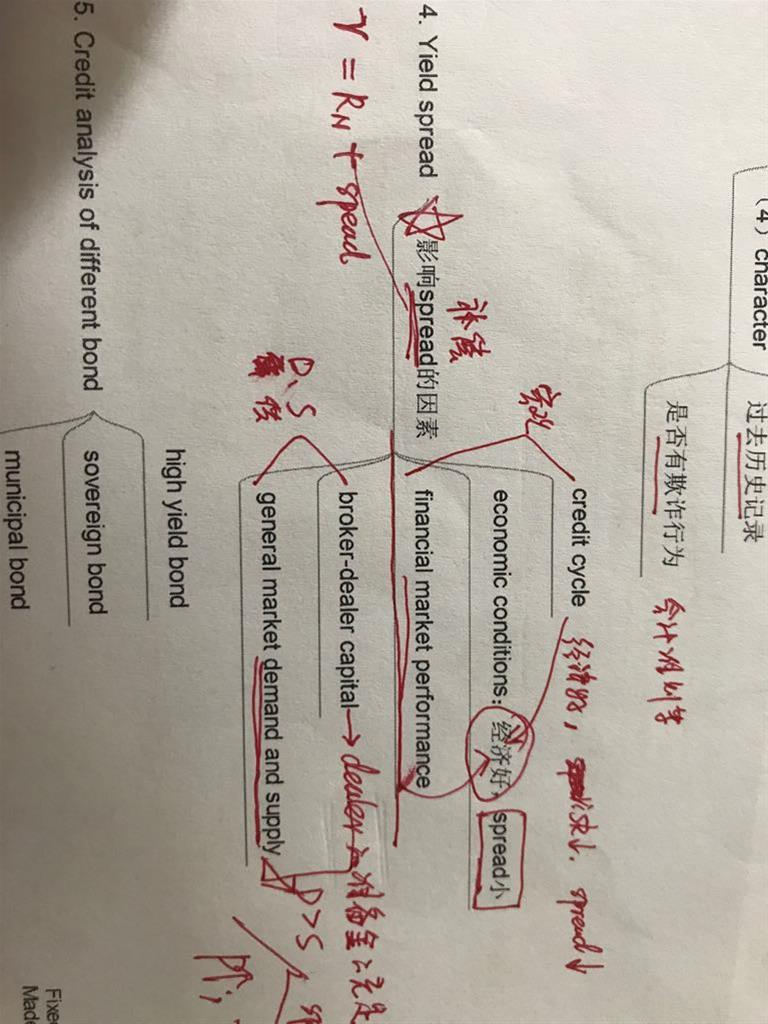 (4) character
过去历史记录
是否有欺诈行为 会计准则等
4. Yield spread
影响spread的因素
补偿
宏观
credit cycle
经济好, 风险↓. spread↓
economic conditions: 经济好, spread小
financial market performance
broker-dealer capital → dealer 准备金 充足
general market demand and supply
D>S
P↑;
D、S
需 供
r = RN + spread
5. Credit analysis of different bond
high yield bond
sovereign bond
municipal bond